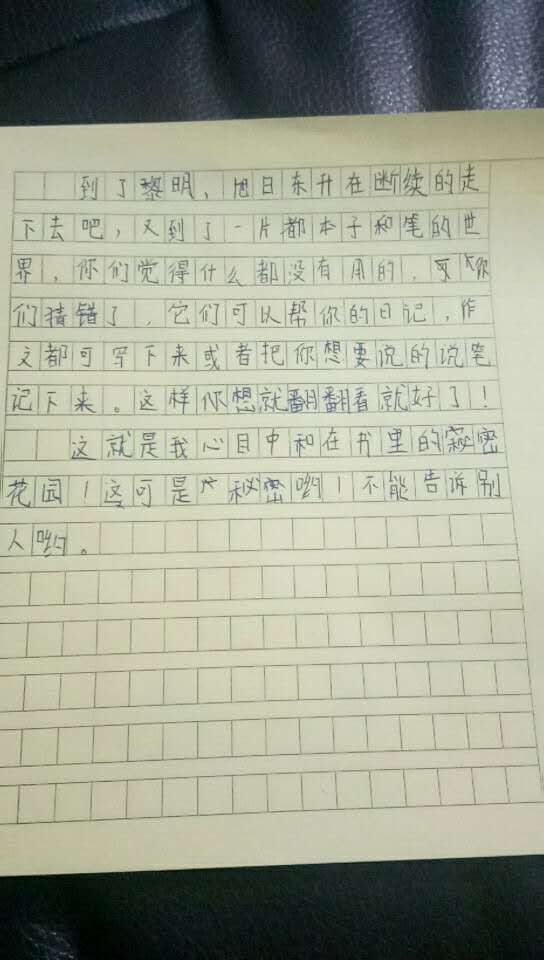 到了黎明，旭日东升在断续的走
下去吧，又到了一片都本子和笔的世
界，你们觉得什么都没有用的，你
们猜错了，它们可以帮你的日记，作
文都可写下来或者把你想要说的说笔
记下来。这样你想就翻翻看就好了！
这就是我心目中和在书里的秘密
花园！这可是个秘密哟！不能告诉别
人哟。